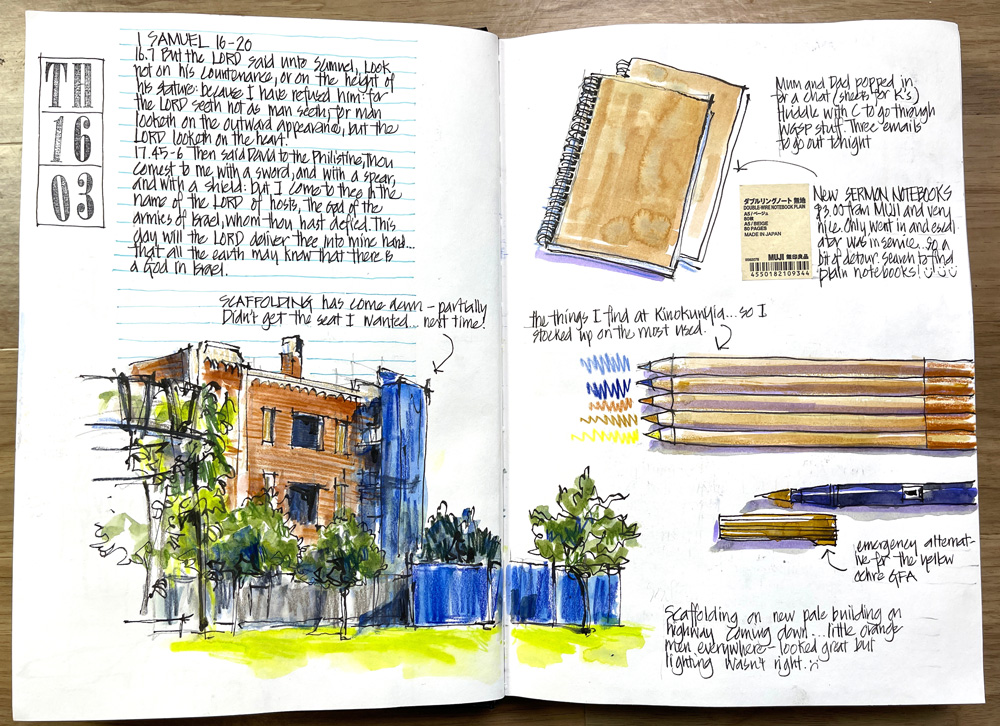 TH
16
03
1 SAMUEL 16-20
16.7 But the LORD said unto Samuel, Look
not on his countenance, or on the height of
his stature: because I have refused him: for
the LORD seeth not as man seeth; for man
looketh on the outward appearance, but the
LORD looketh on the heart.
17.45-6 Then said David to the Philistine, thou
comest to me, with a sword, and with a spear,
and with a shield: but I come to thee in the
name of the LORD of hosts, the God of the
armies of Israel, whom thou hast defied. This
day will the LORD deliver thee into mine hand...
that all the earth may know that there is
a God in Israel.
SCAFFOLDING has come down - partially
Didn't get the seat I wanted... next time!
Mum and Dad popped in
for a chat (sheets for K's)
Huddle with C to go through
WGSP stuff. Three emails
to go out tonight
ダブルリングノート 無地
DOUBLE-WIRE NOTEBOOK PLAIN
A5/ベージュ
80枚
A5/BEIGE
80 PAGES
MADE IN JAPAN
MUJI 無印良品
4550182109344
NEW SERMON NOTEBOOKS
$3.00 from MUJI and very
nice. Only went in and escal
ator was in service... so a
bit of detour. Search to find
plain notebooks!
the things I find at Kinokunyia... so I
stocked up on the most used.
emergency alternat-
ive for the yellow
ochre GFA
Scaffolding on new pale building on
highway coming down... little orange
men everywhere - looked great but
lighting wasn't right.